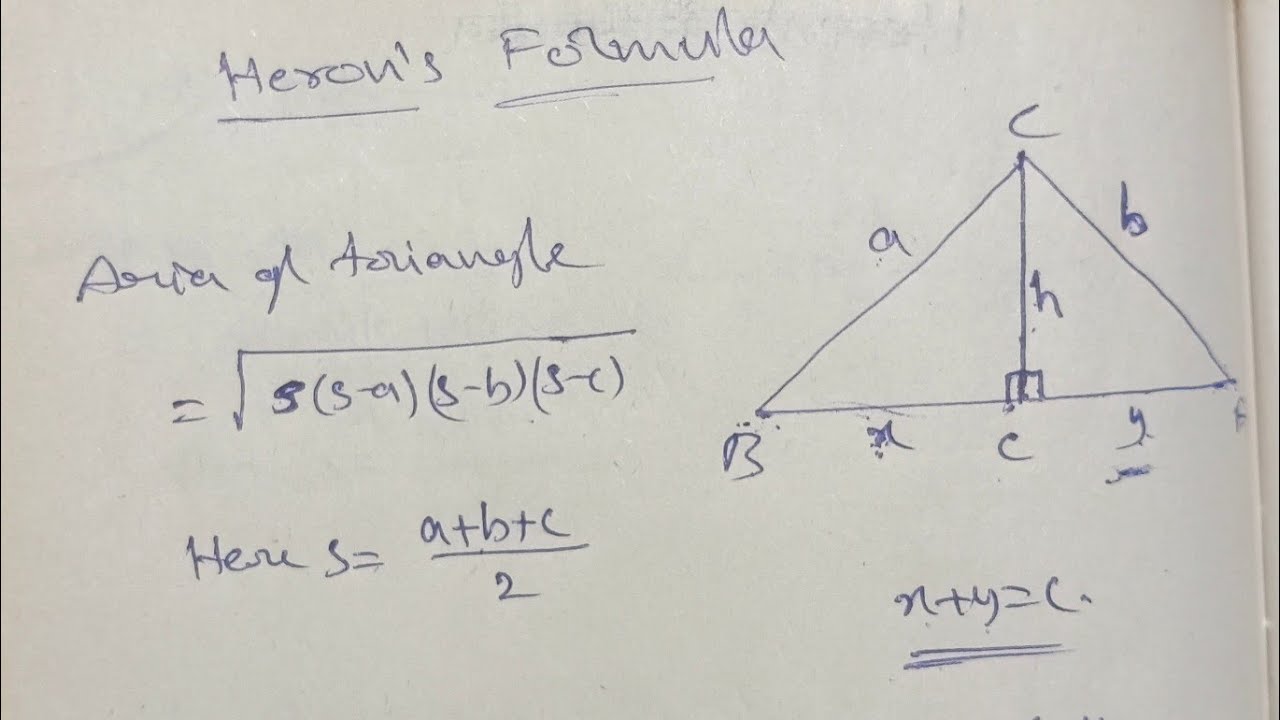 Heron's Formula
Area of triangle
= √s(s-a)(s-b)(s-c)
Here s = a+b+c
2
C
a
b
h
B
x
c
y
x+y=c.